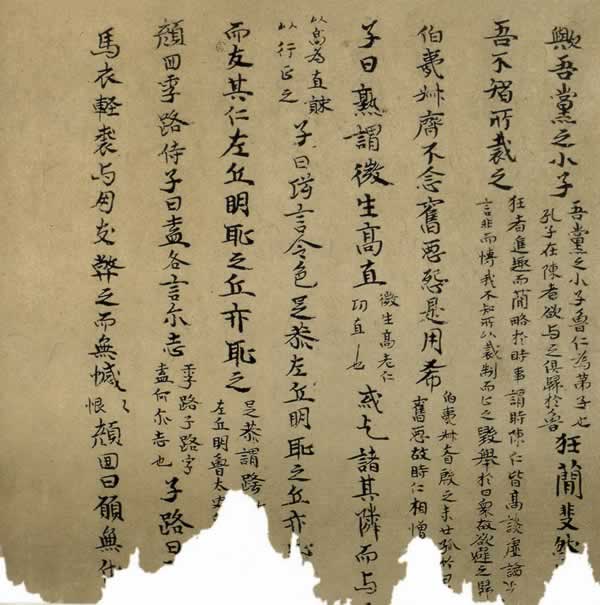 歟吾黨之小子吾黨之小子魯仁為弟子也孔子在陳者欲与之俱歸於魯狂蕑斐然
吾不智所裁之狂者進趣而蕑略於時事謂時陳仁皆高談虛論言非而博我不知所以裁制而止之毀舉於日衆故欲避之歸
伯夷叔齊不念舊惡怨是用希伯夷叔齊殷之末世孤竹舊惡故時仁相憎
子曰熟謂微生高直微生高老仁功直也或乞諸其隣而与
以高為直以行正之子曰巧言令色足恭左丘明恥之丘亦恥
而友其仁左丘明恥之丘亦恥之足恭謂左丘明魯太史
顏回季路侍子曰盍各言尓志季路子路字盍何尓志也子路曰
馬衣輕裘与朋友弊之而無憾恨顏回曰願無伐